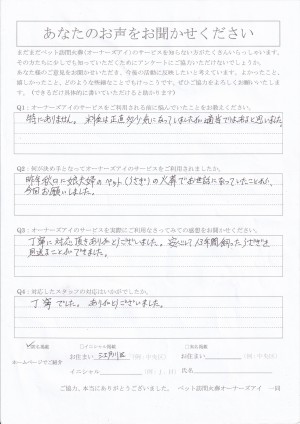 あなたのお声をお聞かせください
まだまだペット訪問火葬(オーナーズアイ)のサービスを知らない方がたくさんいらっしゃいます。
その方たちに少しでも知っていただくためにアンケートにご協力いただけないでしょうか。
あなた様のご意見をお聞かせいただき、今後の活動に反映したいと考えています。よかったこと、
嬉しかったこと、どのような些細なことでもけっこうです。ぜひご協力をよろしくお願いいたしま
す。(できるだけ具体的に書いていただけると助かります)
Q1：オーナーズアイのサービスをご利用される前に悩んでいたことをお教えください。
特にありません。料金は正直多少気になっていましたが適当ではあると思いました。
Q2：何が決め手となってオーナーズアイのサービスをご利用されましたか。
昨年秋口に娘夫婦のペット(うさぎ)の火葬でお世話になっていたことから、
今回お願いしました。
Q3：オーナーズアイのサービスを実際にご利用なさってみての感想をお聞かせください。
丁寧に対応頂きありがとうございました。安心して13年間飼ったうさぎを
見送ることができました。
Q4：対応したスタッフの対応はいかがでしたか。
丁寧でした。ありがとうございました。
匿名掲載
□イニシャル掲載
□実名掲載
ホームページでご紹介
お住まい 江戸川区 (例：中央区)
お住まい (例：中央区)
イニシャル (例：I．H)
氏名
ご協力、本当にありがとうございました。 ペット訪問火葬オーナーズアイ 一同